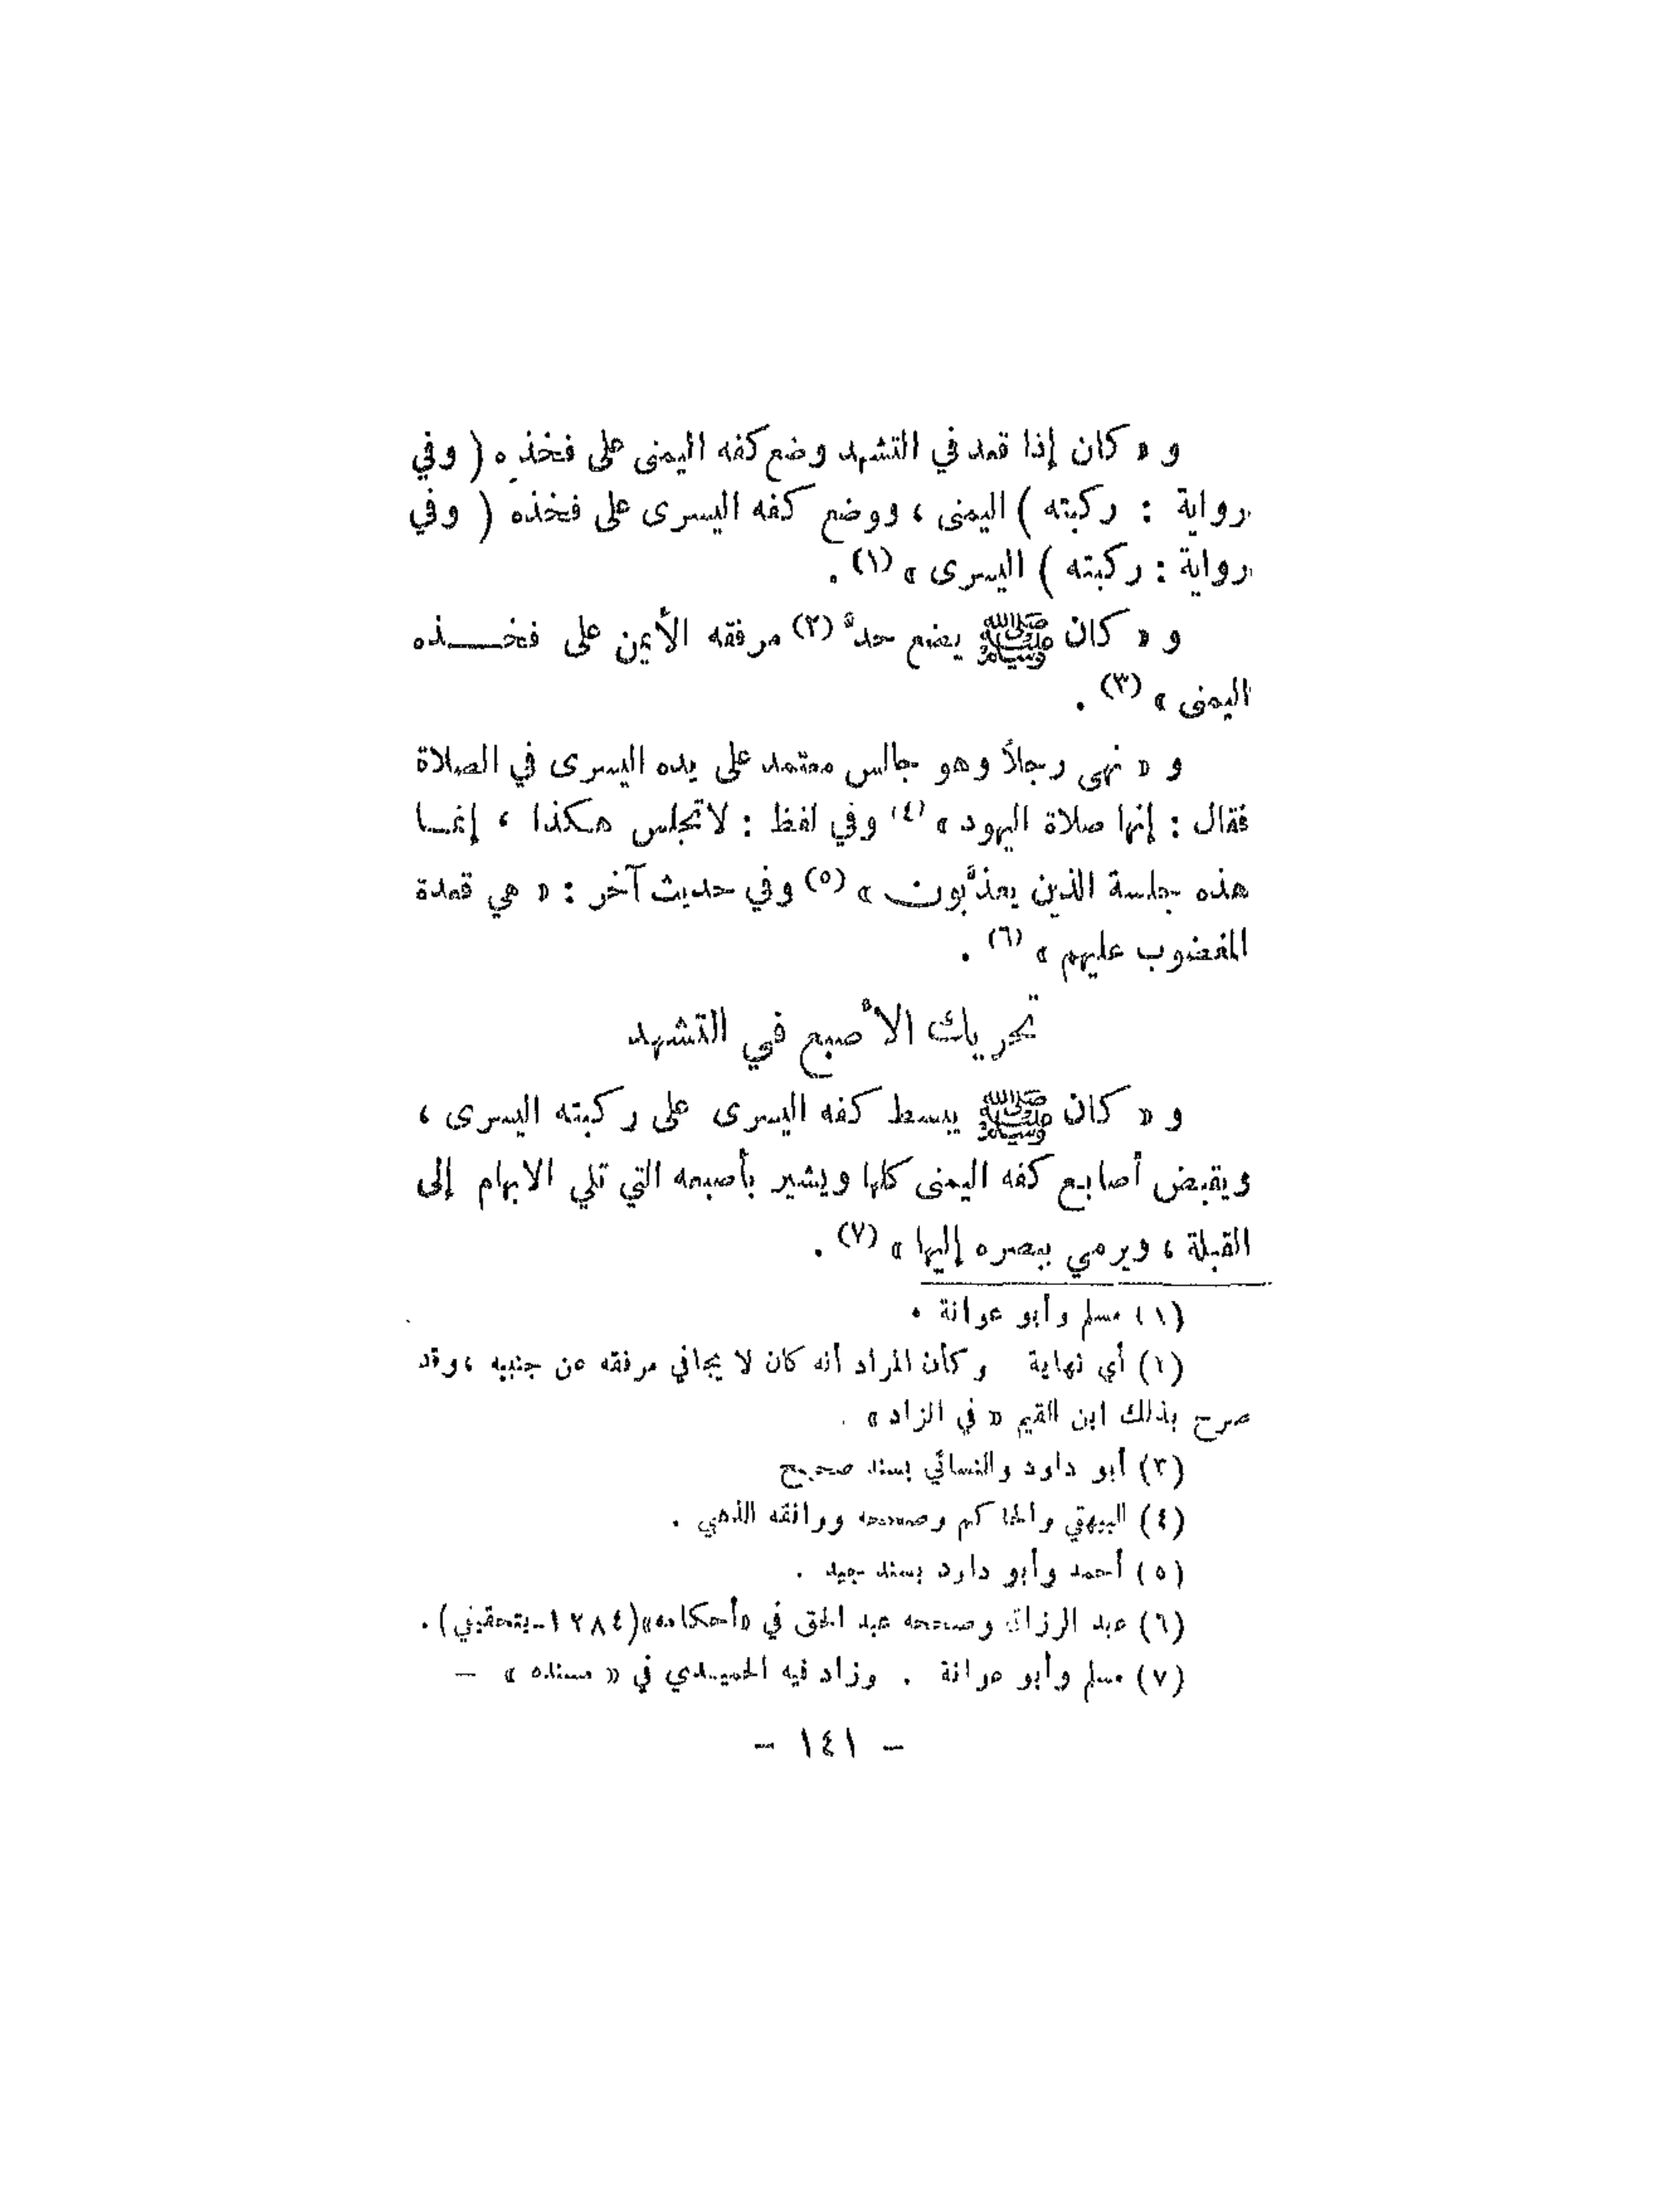 و « كان إذا قعد في التشهد وضع كفه اليمنى على فخذه ( وفي
رواية : ركبته ) اليمنى ، ووضع كفه اليسرى على فخذه ( وفي
رواية : ركبته ) اليسرى » (١) .
و « كان ﷺ يضع حدَّ (٢) مرفقه الأيمن على فخـــذه
اليمنى » (٣) .
و « نهى رجلاً وهو جالس معتمد على يده اليسرى في الصلاة
فقال : إنها صلاة اليهود » (٤) وفي لفظ : لا تجلس هكذا ، إنمـا
هذه جلسة الذين يعذَّبون » (٥) وفي حديث آخر : « هي قعدة
المغضوب عليهم » (٦) .
تحريك الأصبع في التشهد
و « كان ﷺ يبسط كفه اليسرى على ركبته اليسرى ،
ويقبض أصابع كفه اليمنى كلها ويشير بأصبعه التي تلي الابهام إلى
القبلة ، ويرمي ببصره إليها » (٧) .
(١) مسلم وأبو عوانة .
(٢) أي نهاية وكأن المراد أنه كان لا يجافي مرفقه عن جنبيه ، وقد
صرح بذلك ابن القيم « في الزاد » .
(٣) أبو داود والنسائي بسند صحيح
(٤) البيهقي والحاكم وصححه ووافقه الذهبي .
(٥) أحمد وأبو داود بسند جيد .
(٦) عبد الرزاق وصححه عبد الحق في «أحكامه» (١٢٨٤ـبتحقيقي) .
(٧) مسلم وأبو عوانة . وزاد فيه الحميـدي في « مسنده » —
- ١٤١ -